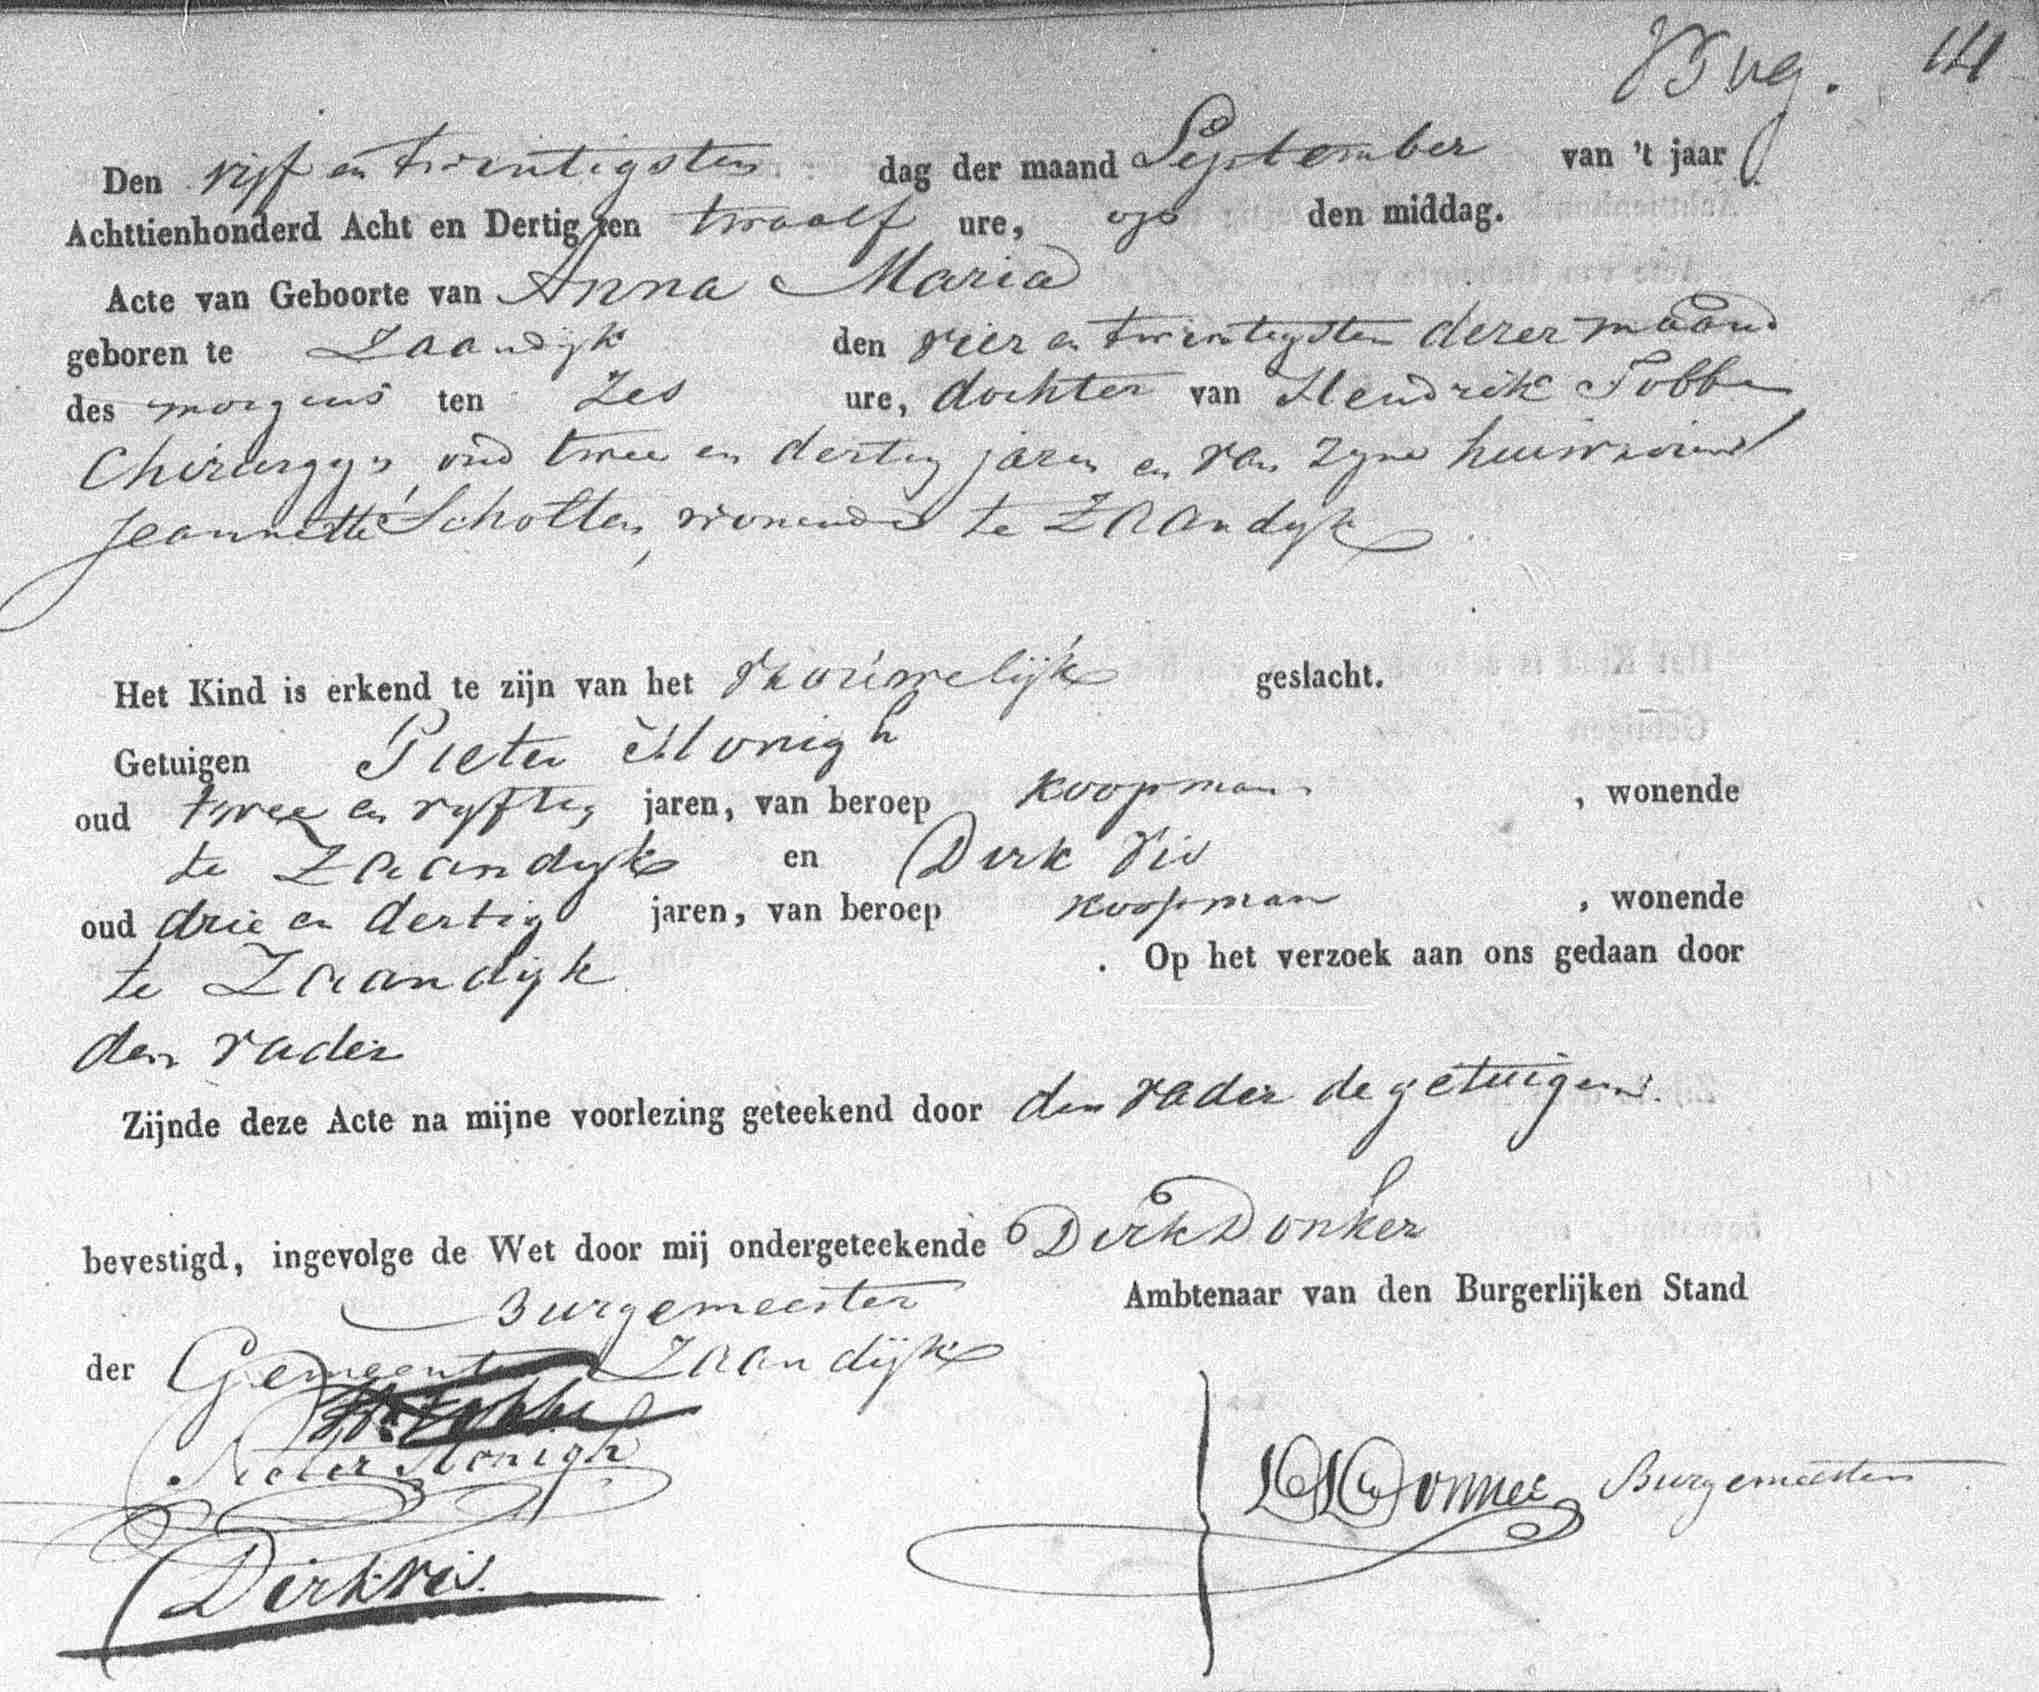 14
Den vijf en twintigsten dag der maand September van 't jaar
Achttienhonderd Acht en Dertig ten twaalf ure, op den middag.
Acte van Geboorte van Anna Maria
geboren te Zaandijk den vier en twintigsten dezer maand
des morgens ten Zes ure, dochter van Hendrik Tobbe
Chirurgyn, oud twee en dertig jaren en van zyne huisvrouw
Jeannette Scholten, wonende te Zaandyk
Het Kind is erkend te zijn van het vrouwelijk geslacht.
Getuigen Pieter Honigh
oud twee en vyftig jaren, van beroep koopman , wonende
te Zaandyk en Dirk Vis
oud drie en dertig jaren, van beroep koopman , wonende
te Zaandijk . Op het verzoek aan ons gedaan door
den vader
Zijnde deze Acte na mijne voorlezing geteekend door den vader de getuigen.
bevestigd, ingevolge de Wet door mij ondergeteekende Dirk Donker
Burgemeester Ambtenaar van den Burgerlijken Stand
der Gemeente Zaandijk
Pieter Honigh
Donker Burgemeester
Dirk Vis.